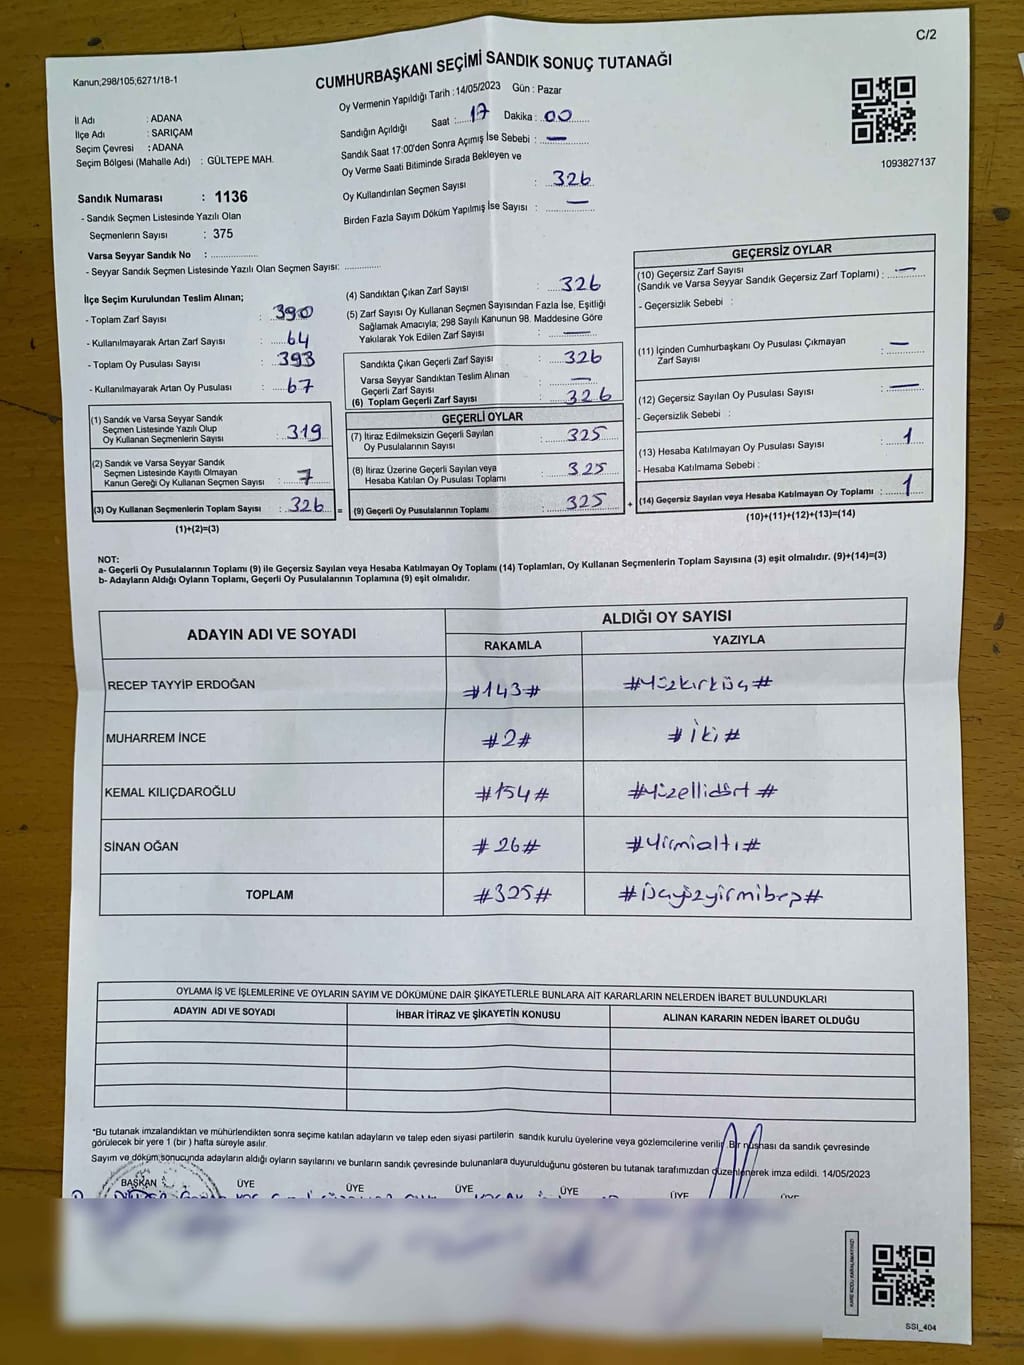 C/2
Kanun,298/105,6271/18-1
CUMHURBAŞKANI SEÇİMİ SANDIK SONUÇ TUTANAĞI
Oy Vermenin Yapıldığı Tarih : 14/05/2023 Gün : Pazar
İl Adı : ADANA
İlçe Adı : SARIÇAM
Seçim Çevresi : ADANA
Seçim Bölgesi (Mahalle Adı) : GÜLTEPE MAH.
Sandığın Açıldığı Saat : 17 Dakika : 00
Sandık Saat 17:00'den Sonra Açımış İse Sebebi : —
Oy Verme Saati Bitiminde Sırada Bekleyen ve
Oy Kullandırılan Seçmen Sayısı : 326
Birden Fazla Sayım Döküm Yapılmış İse Sayısı : —
1093827137
Sandık Numarası : 1136
- Sandık Seçmen Listesinde Yazılı Olan
Seçmenlerin Sayısı : 375
Varsa Seyyar Sandık No :
- Seyyar Sandık Seçmen Listesinde Yazılı Olan Seçmen Sayısı:
İlçe Seçim Kurulundan Teslim Alınan;
- Toplam Zarf Sayısı : 390
- Kullanılmayarak Artan Zarf Sayısı : 64
- Toplam Oy Pusulası Sayısı : 393
- Kullanılmayarak Artan Oy Pusulası : 67
(1) Sandık ve Varsa Seyyar Sandık
Seçmen Listesinde Yazılı Olup
Oy Kullanan Seçmenlerin Sayısı : 319
(2) Sandık ve Varsa Seyyar Sandık
Seçmen Listesinde Kayıtlı Olmayan
Kanun Gereği Oy Kullanan Seçmen Sayısı : 7
(3) Oy Kullanan Seçmenlerin Toplam Sayısı : 326 =
(1)+(2)=(3)
(4) Sandıktan Çıkan Zarf Sayısı : 326
(5) Zarf Sayısı Oy Kullanan Seçmen Sayısından Fazla İse, Eşitliği
Sağlamak Amacıyla; 298 Sayılı Kanunun 98. Maddesine Göre
Yakılarak Yok Edilen Zarf Sayısı : —
Sandıkta Çıkan Geçerli Zarf Sayısı : 326
Varsa Seyyar Sandıktan Teslim Alınan
Geçerli Zarf Sayısı : —
(6) Toplam Geçerli Zarf Sayısı : 326
GEÇERLİ OYLAR
(7) İtiraz Edilmeksizin Geçerli Sayılan
Oy Pusulalarının Sayısı : 325
(8) İtiraz Üzerine Geçerli Sayılan veya
Hesaba Katılan Oy Pusulası Toplamı : 325
(9) Geçerli Oy Pusulalarının Toplamı : 325 +
GEÇERSİZ OYLAR
(10) Geçersiz Zarf Sayısı
(Sandık ve Varsa Seyyar Sandık Geçersiz Zarf Toplamı) : —
- Geçersizlik Sebebi :
(11) İçinden Cumhurbaşkanı Oy Pusulası Çıkmayan
Zarf Sayısı : —
(12) Geçersiz Sayılan Oy Pusulası Sayısı : —
- Geçersizlik Sebebi :
(13) Hesaba Katılmayan Oy Pusulası Sayısı : 1
- Hesaba Katılmama Sebebi :
(14) Geçersiz Sayılan veya Hesaba Katılmayan Oy Toplamı : 1
(10)+(11)+(12)+(13)=(14)
NOT:
a- Geçerli Oy Pusulalarının Toplamı (9) ile Geçersiz Sayılan veya Hesaba Katılmayan Oy Toplamı (14) Toplamları, Oy Kullanan Seçmenlerin Toplam Sayısına (3) eşit olmalıdır. (9)+(14)=(3)
b- Adayların Aldığı Oyların Toplamı, Geçerli Oy Pusulalarının Toplamına (9) eşit olmalıdır.
ADAYIN ADI VE SOYADI ALDIĞI OY SAYISI
RAKAMLA YAZIYLA
RECEP TAYYİP ERDOĞAN #143# #Yüzkırküç#
MUHARREM İNCE #2# #İki#
KEMAL KILIÇDAROĞLU #154# #Yüzellidört#
SİNAN OĞAN #26# #Yirmialtı#
TOPLAM #325# #Üçyüzyirmibeş#
OYLAMA İŞ VE İŞLEMLERİNE VE OYLARIN SAYIM VE DÖKÜMÜNE DAİR ŞİKAYETLERLE BUNLARA AİT KARARLARIN NELERDEN İBARET BULUNDUKLARI
ADAYIN ADI VE SOYADI İHBAR İTİRAZ VE ŞİKAYETİN KONUSU ALINAN KARARIN NEDEN İBARET OLDUĞU
*Bu tutanak imzalandıktan ve mühürlendikten sonra seçime katılan adayların ve talep eden siyasi partilerin sandık kurulu üyelerine veya gözlemcilerine verilir. Bir nüshası da sandık çevresinde
görülecek bir yere 1 (bir ) hafta süreyle asılır.
Sayım ve döküm sonucunda adayların aldığı oyların sayılarını ve bunların sandık çevresinde bulunanlara duyurulduğunu gösteren bu tutanak tarafımızdan düzenlenerek imza edildi. 14/05/2023
BAŞKAN ÜYE ÜYE ÜYE ÜYE ÜYE ÜYE
KARE KODU KARALAMAYINIZ!
SSI_404